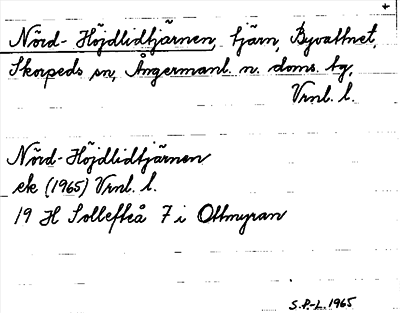 Nörd-Höjdlidtjärnen, tjärn, Byvattnet,
Skorpeds sn, Ångermanl. n. doms. tg,
Vrnl. l.
Nörd-Höjdlidtjärnen
ek (1965) Vrnl. l.
19 H Sollefteå 7 i Ottmyran
S.P.-L. 1965